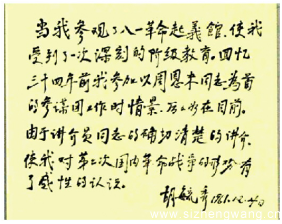 当我参观了八一革命起義館，使我
受到了一次深刻的阶级教育。回忆
三十四年前我参加以周恩来同志为首
的参谋团工作时情景，历历如在目前。
由于讲介员同志的确切清楚的讲介，
使我对第二次国内革命战争的形势有
了感性的认识。
胡毓秀
www.sizhengwang.cn